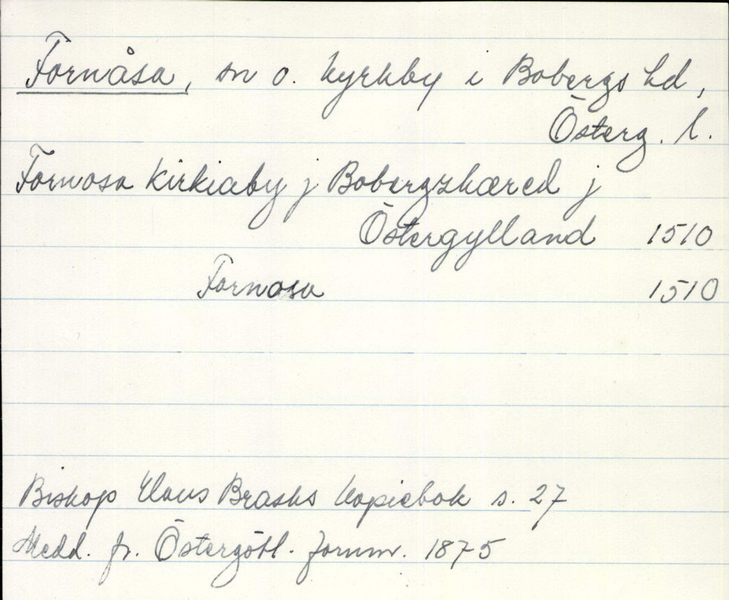 Fornåsa, sn o. kyrkby i Bobergs hd,
Österg. l.
Fornosa Kirkiaby j Bobergzhæred j
Östergylland 1510
Fornosa 1510
Biskop Claus Brasks kopiebok s. 27
Medd. fr. Östergötl. fornm. 1875